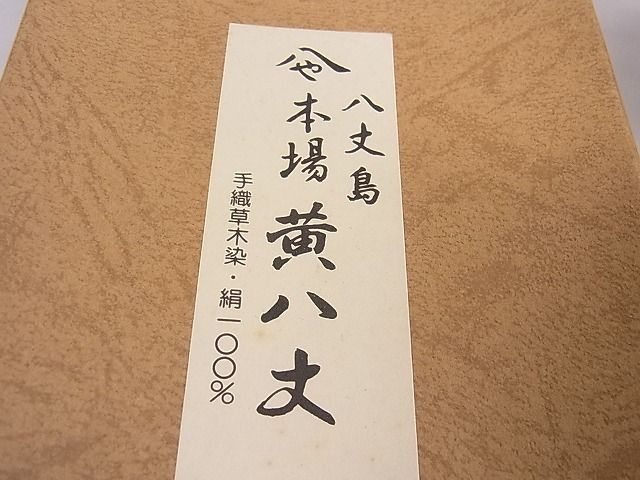 八丈島
や本場黄八丈
手織草木染・絹一〇〇%